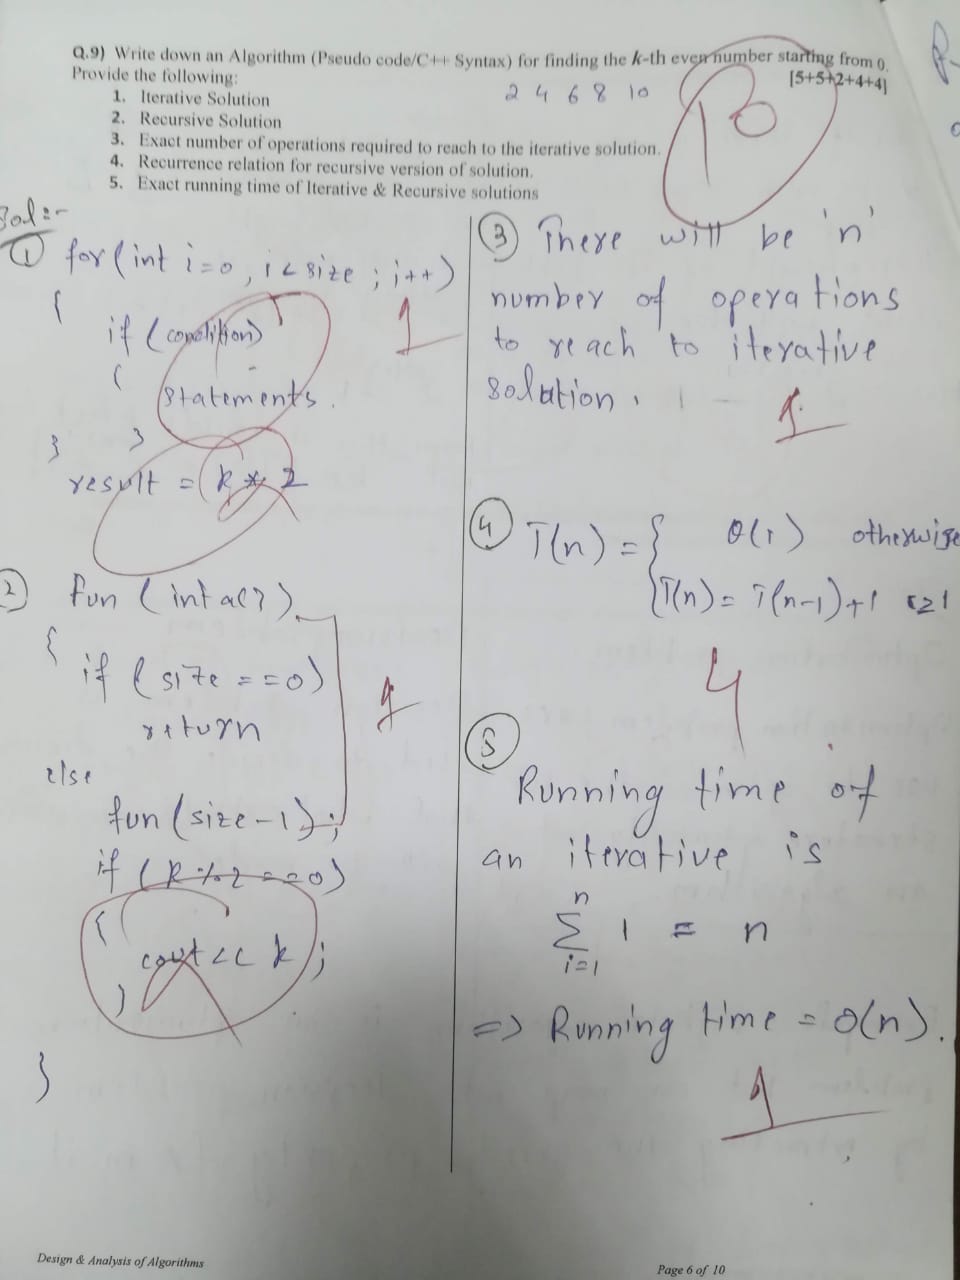 Q.9) Write down an Algorithm (Pseudo code/C++ Syntax) for finding the k-th even number starting from 0.
Provide the following: [5+5+2+4+4]
1. Iterative Solution
2 4 6 8 10
2. Recursive Solution
3. Exact number of operations required to reach to the iterative solution.
4. Recurrence relation for recursive version of solution.
5. Exact running time of Iterative & Recursive solutions
Sol:-
① for(int i=0, i<size; i++)
{
if (condition)
{
statements.
}
}
result = k*2
1
② fun (int a[])
{
if (size==0)
return
else
fun(size-1);
if (k%2==0)
{
cout<< k;
}
}
1
③ There will be 'n'
number of operations
to reach to iterative
solution.
1
④ T(n) = { θ(1) otherwise
T(n)= T(n-1)+1
4
⑤
Running time of
an iterative is
n
Σ 1 = n
i=1
=> Running time = O(n).
1
Design & Analysis of Algorithms
Page 6 of 10